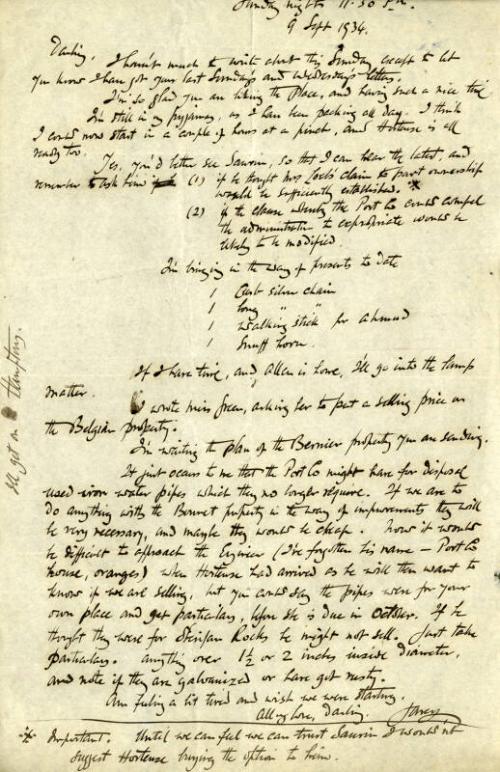 Sunday night 11.30 p.m.
9 Sept 1934.
Darling,
I haven't much to write about this Sunday except to let
you know I have got your last Sunday's and Wednesday's letters.
I'm so glad you are liking the Place, and having such a nice time.
I'm still in my pyjamas, as I have been packing all day. I think
I could now start in a couple of hours at a pinch, and Hortense is all
ready too.
Yes, you'd better see Saurin, so that I can hear the latest, and
remember to ask him (1) if he thought Mrs claim to part ownership
would be sufficiently established. *
(2) if the clause whereby the Port Co could compel
the administration to expropriate would be
likely to be modified.
I'm bringing in the way of presents to date
1 Curb silver chain
1 long " "
1 walking stick for Ahmed
1 Snuff horn.
If I have time, and Allan is home, I'll go into the lamp
matter.
I wrote Miss Green, asking her to put a selling price on
the Belgian property.
I'm awaiting the plan of the Bernier property you are sending.
It just occurs to me that the Port Co might have for disposal
used iron water pipes which they no longer require. If we are to
do anything with the property in the way of improvements they will
be very necessary, and maybe they would be cheap. Now it would
be difficult to approach the Engineer (I've forgotten his name – Port Co
house, oranges) when Hortense had arrived as he will then want to
know if we are selling, but you could say the pipes were for your
own place and get particulars, before she is due in October. If he
thought they were for Rocks he might not sell. Just take
particulars. Anything over 1½ or 2 inches inside diameter,
and note if they are galvanized or have got rusty.
Am feeling a bit tired and wish we were starting.
All my love, darling.
* Important. Until we can feel we can trust Saurin I would n't
suggest Hortense buying the option to him.
I'll get on